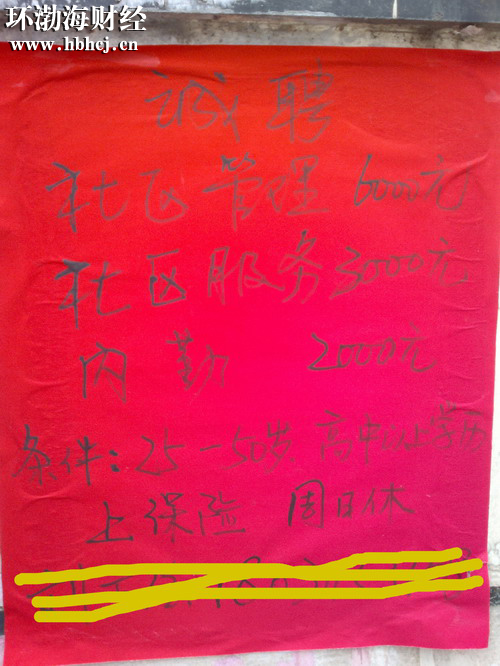 环渤海财经
www.hbhcj.cn
诚聘
社区管理 6000元
社区服务 3000元
内勤 2000元
条件：25-50岁 高中以上学历
上保险 周日休